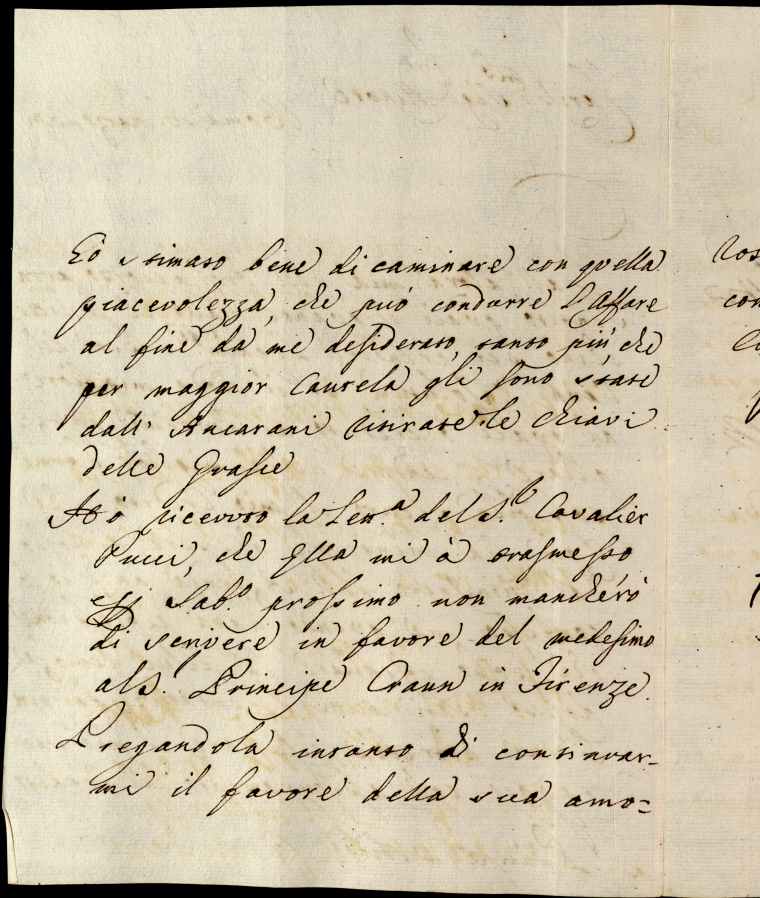 Eò stimato bene di caminare con quella
piacevolezza, che può condurre l'Affare
al fine da me desiderato, tanto più che
per maggior Cautela gli sono state
dall' Ancarani ritirate le chiavi
delle Grasce
Hò ricevuto la Lett.ª del S.r Cavalier
Pucci, che Ella mi à trasmesso
Sab.º prossimo non mancherò
di scrivere in favore del medesimo
al S. Principe Craun in Firenze.
Pregandola intanto di continuar-
mi il favore della sua amo=